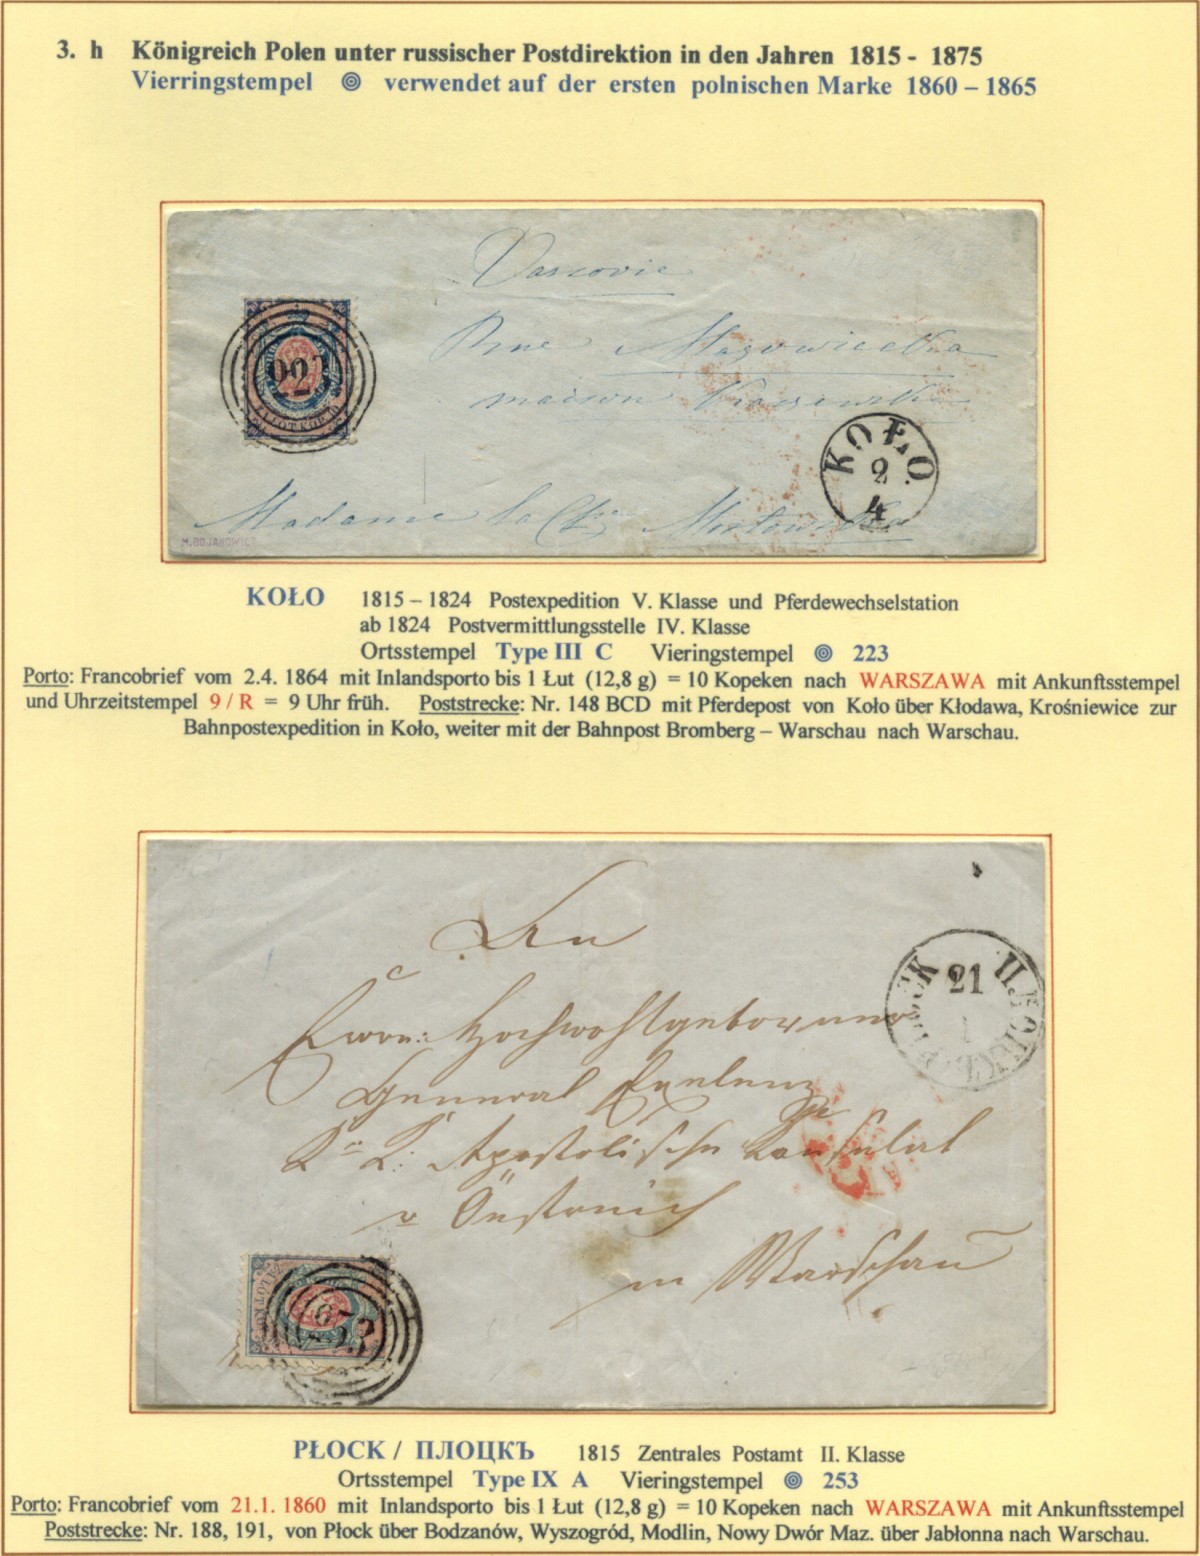 3. h Königreich Polen unter russischer Postdirektion in den Jahren 1815 - 1875
Vierringstempel verwendet auf der ersten polnischen Marke 1860 – 1865
Varsovie
223
Mazowiecka
maison
KOŁO.
2
4
Madame la
M.BOJANOWICZ
KOŁO 1815 – 1824 Postexpedition V. Klasse und Pferdewechselstation
ab 1824 Postvermittlungsstelle IV. Klasse
Ortsstempel Type III C Vieringstempel 223
Porto: Francobrief vom 2.4. 1864 mit Inlandsporto bis 1 Łut (12,8 g) = 10 Kopeken nach WARSZAWA mit Ankunftsstempel
und Uhrzeitstempel 9 / R = 9 Uhr früh. Poststrecke: Nr. 148 BCD mit Pferdepost von Koło über Kłodawa, Krośniewice zur
Bahnpostexpedition in Koło, weiter mit der Bahnpost Bromberg – Warschau nach Warschau.
An
Hochwohlgeboren
General
K: K: Apostolische Konsulat
v Öestreich
in Warschau
21
1
ZŁOT KOP
PŁOCK / ПЛОЦКЪ 1815 Zentrales Postamt II. Klasse
Ortsstempel Type IX A Vieringstempel 253
Porto: Francobrief vom 21.1. 1860 mit Inlandsporto bis 1 Łut (12,8 g) = 10 Kopeken nach WARSZAWA mit Ankunftsstempel
Poststrecke: Nr. 188, 191, von Płock über Bodzanów, Wyszogród, Modlin, Nowy Dwór Maz. über Jabłonna nach Warschau.